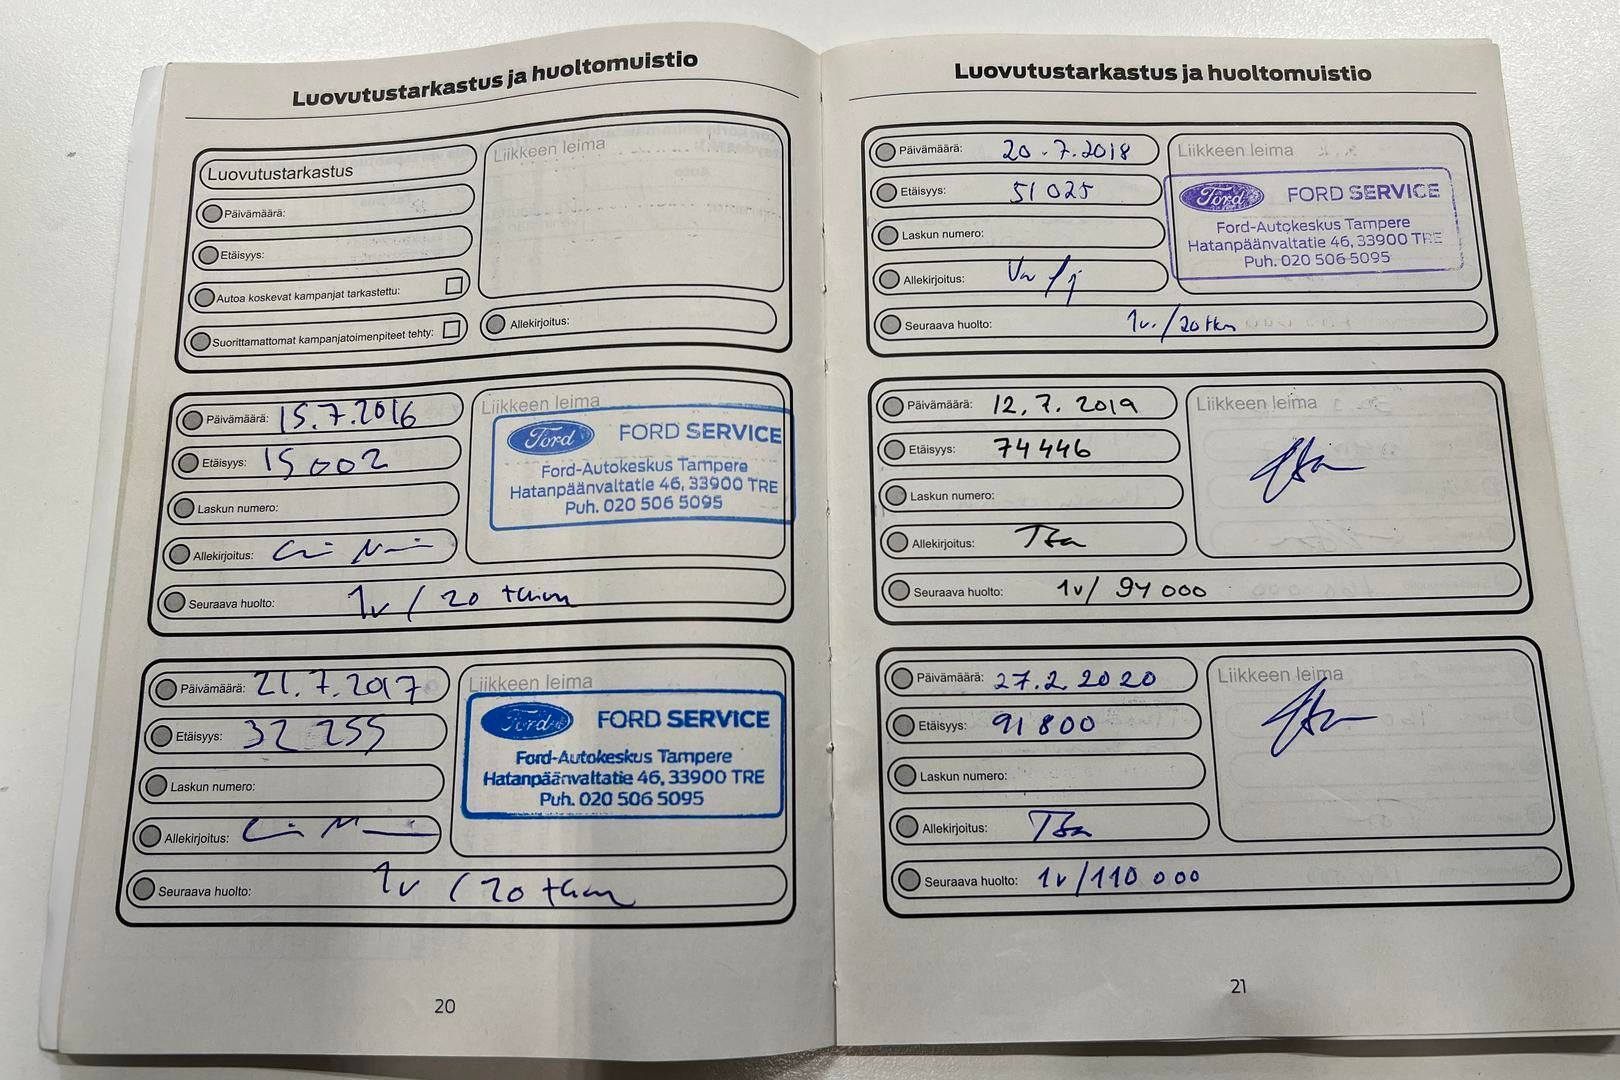 Luovutustarkastus ja huoltomuistio
Luovutustarkastus
Päivämäärä:
Etäisyys:
Autoa koskevat kampanjat tarkastettu:
Suorittamattomat kampanjatoimenpiteet tehty:
Liikkeen leima
Allekirjoitus:
Päivämäärä: 15.7.2016
Etäisyys: 15 002
Laskun numero:
Allekirjoitus:
Seuraava huolto: 1v / 20 tkm
Liikkeen leima
Ford FORD SERVICE
Ford-Autokeskus Tampere
Hatanpäänvaltatie 46, 33900 TRE
Puh. 020 506 5095
Päivämäärä: 21.7.2017
Etäisyys: 32 255
Laskun numero:
Allekirjoitus:
Seuraava huolto: 1v / 20 tkm
Liikkeen leima
Ford FORD SERVICE
Ford-Autokeskus Tampere
Hatanpäänvaltatie 46, 33900 TRE
Puh. 020 506 5095
20
Luovutustarkastus ja huoltomuistio
Päivämäärä: 20.7.2018
Etäisyys: 51 025
Laskun numero:
Allekirjoitus:
Seuraava huolto: 1v./20tkm
Liikkeen leima
Ford FORD SERVICE
Ford-Autokeskus Tampere
Hatanpäänvaltatie 46, 33900 TRE
Puh. 020 506 5095
Päivämäärä: 12.7.2019
Etäisyys: 74 446
Laskun numero:
Allekirjoitus:
Seuraava huolto: 1v/ 94 000
Liikkeen leima
Päivämäärä: 27.2.2020
Etäisyys: 91 800
Laskun numero:
Allekirjoitus:
Seuraava huolto: 1v/110 000
Liikkeen leima
21